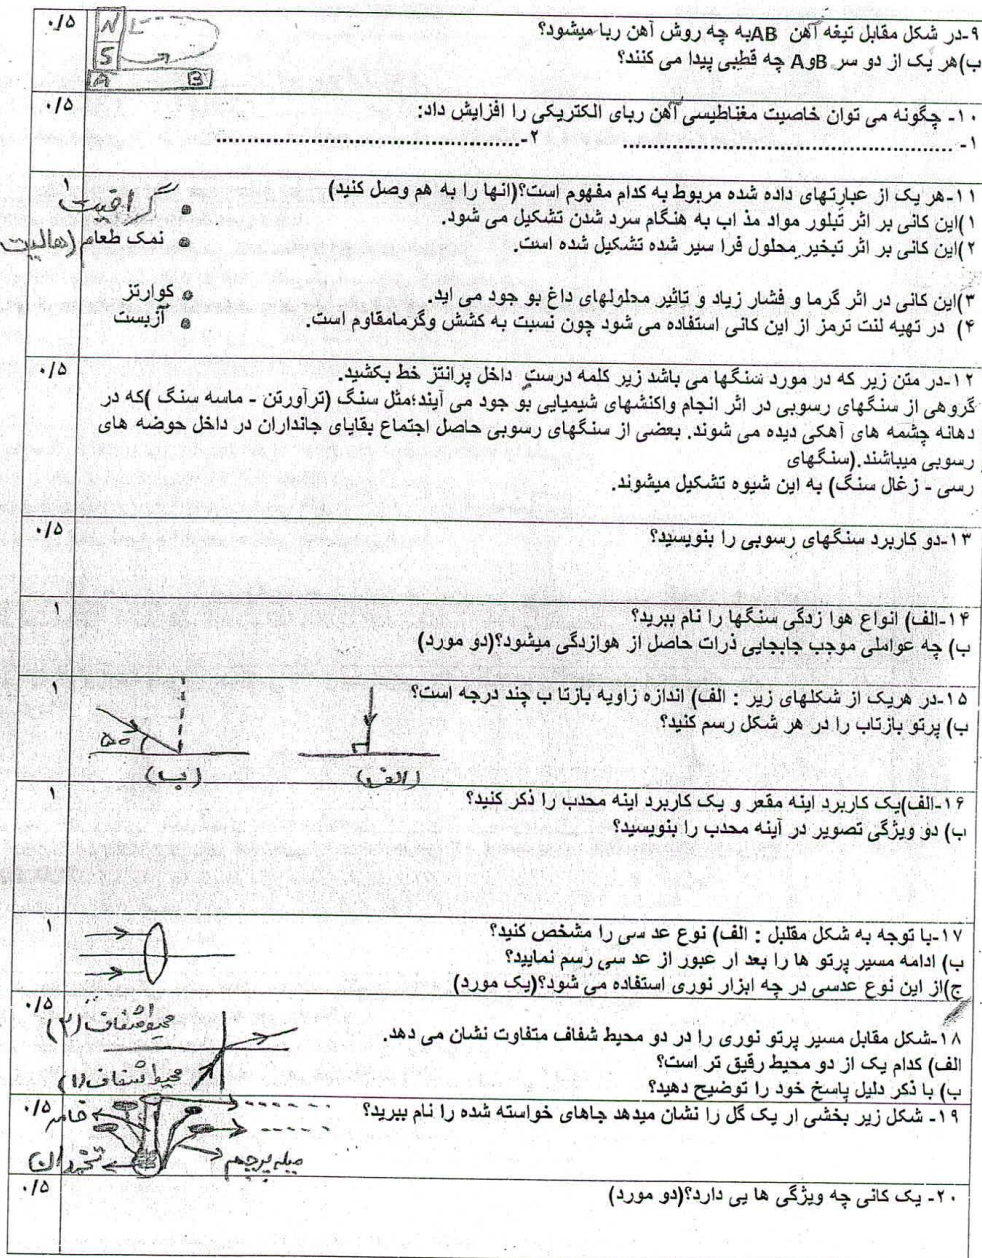 ۹-در شکل مقابل تیغه آهن ABبه چه روش آهن ربا میشود؟
ب)هر یک از دو سر BوA چه قطبی پیدا می کنند؟
۰/۵
N
S
A B
۱۰- چگونه می توان خاصیت مغناطیسی آهن ربای الکتریکی را افزایش داد:
۰/۵
۱-.................................................. ۲-..................................................
۱۱-هر یک از عبارتهای داده شده مربوط به کدام مفهوم است؟(انها را به هم وصل کنید)
۱
۱)این کانی بر اثر تبلور مواد مذ اب به هنگام سرد شدن تشکیل می شود.
گرافیت
۲)این کانی بر اثر تبخیر محلول فرا سیر شده تشکیل شده است.
نمک طعام (هالیت)
۳)این کانی در اثر گرما و فشار زیاد و تاثیر محلولهای داغ بو جود می اید.
کوارتز
۴) در تهیه لنت ترمز از این کانی استفاده می شود چون نسبت به کشش وگرمامقاوم است.
آزبست
۱۲-در متن زیر که در مورد سنگها می باشد زیر کلمه درست داخل پرانتز خط بکشید.
۰/۵
گروهی از سنگهای رسوبی در اثر انجام واکنشهای شیمیایی بو جود می آیند؛مثل سنگ (تراورتن - ماسه سنگ )که در
دهانه چشمه های آهکی دیده می شوند. بعضی از سنگهای رسوبی حاصل اجتماع بقایای جانداران در داخل حوضه های
رسوبی میباشند.(سنگهای
رسی - زغال سنگ) به این شیوه تشکیل میشوند.
۱۳-دو کاربرد سنگهای رسوبی را بنویسید؟
۰/۵
۱۴-الف) انواع هوا زدگی سنگها را نام ببرید؟
۱
ب) چه عواملی موجب جابجایی ذرات حاصل از هوازدگی میشود؟(دو مورد)
۱۵-در هریک از شکلهای زیر : الف) اندازه زاویه بازتا ب چند درجه است؟
۱
ب) پرتو بازتاب را در هر شکل رسم کنید؟
۵۰
(الف)
(ب)
۱۶-الف)یک کاربرد اینه مقعر و یک کاربرد اینه محدب را ذکر کنید؟
۱
ب) دو ویژگی تصویر در آینه محدب را بنویسید؟
۱۷-با توجه به شکل مقلبل : الف) نوع عد سی را مشخص کنید؟
۱
ب) ادامه مسیر پرتو ها را بعد ار عبور از عد سی رسم نمایید؟
ج)از این نوع عدسی در چه ابزار نوری استفاده می شود؟(یک مورد)
۰/۵
محیط شفاف (۲)
۱۸-شکل مقابل مسیر پرتو نوری را در دو محیط شفاف متفاوت نشان می دهد.
الف) کدام یک از دو محیط رقیق تر است؟
محیط شفاف (۱)
ب) با ذکر دلیل پاسخ خود را توضیح دهید؟
۱۹- شکل زیر بخشی ار یک گل را نشان میدهد جاهای خواسته شده را نام ببرید؟
۰/۵
خامه
تخمدان
میله پرچم
۲۰- یک کانی چه ویژگی ها یی دارد؟(دو مورد)
۰/۵